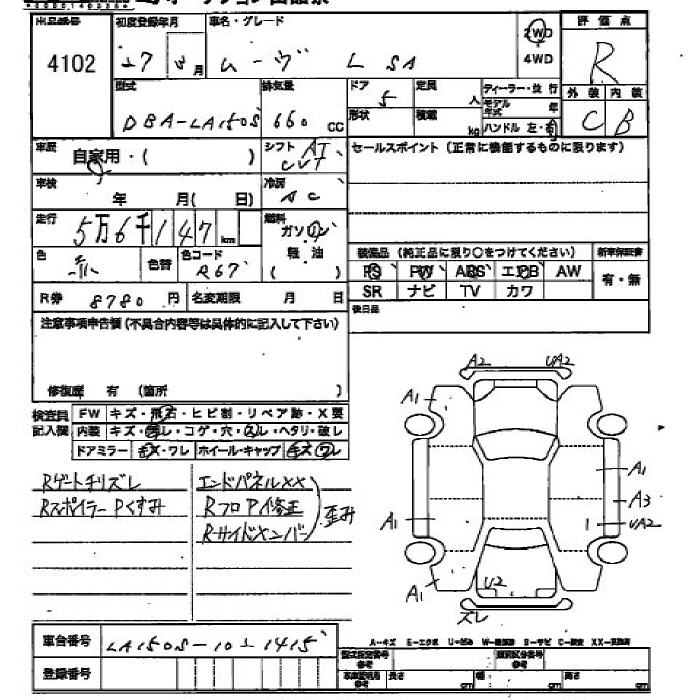 出品番号 初度登録年月 車名・グレード 評価点
4102 27 月 ムーヴ L SA 2WD 4WD R
型式 排気量 ドア 定員 ディーラー・並行 外装 内装
DBA-LA150S 660 CC 5 人 モデル年式 年 C B
形状 積載 kg ハンドル 左・右
車歴 自家用・( ) シフト AT CVT セールスポイント (正常に機能するものに限ります)
車検 年 月( 日) 冷房 AC
走行 5万6千147 km 燃料 ガソリン
色 赤 色替 色コード R67 軽油 ( )
装備品 (純正品に限り○をつけてください) 新車保証書
PS PW ABS エアB AW 有・無
SR ナビ TV カワ
R券 8780 円 名変期限 月 日
後日品
注意事項申告欄(不具合内容等は具体的に記入して下さい)
修復歴 有 (箇所 )
検査員記入欄 FW キズ・飛石・ヒビ割・リペア跡・X要
内装 キズ・汚レ・コゲ・穴・スレ・ヘタリ・破レ
ドアミラー キズ・ワレ ホイール・キャップ キズ・ワレ
A2 UA2
A1
A1
A3
A1 UA2
A1 U2
ズレ
Rゲートチリズレ エンドパネルXX
RスポイラーPくすみ RフロアP修正 歪み
Rサイドメンバー
車台番号 LA150S-1021415
A-キズ E-エクボ U-凹み
登録番号 型式指定番号 参考 類別区分番号 参考
長さ cm 幅 cm 高さ cm